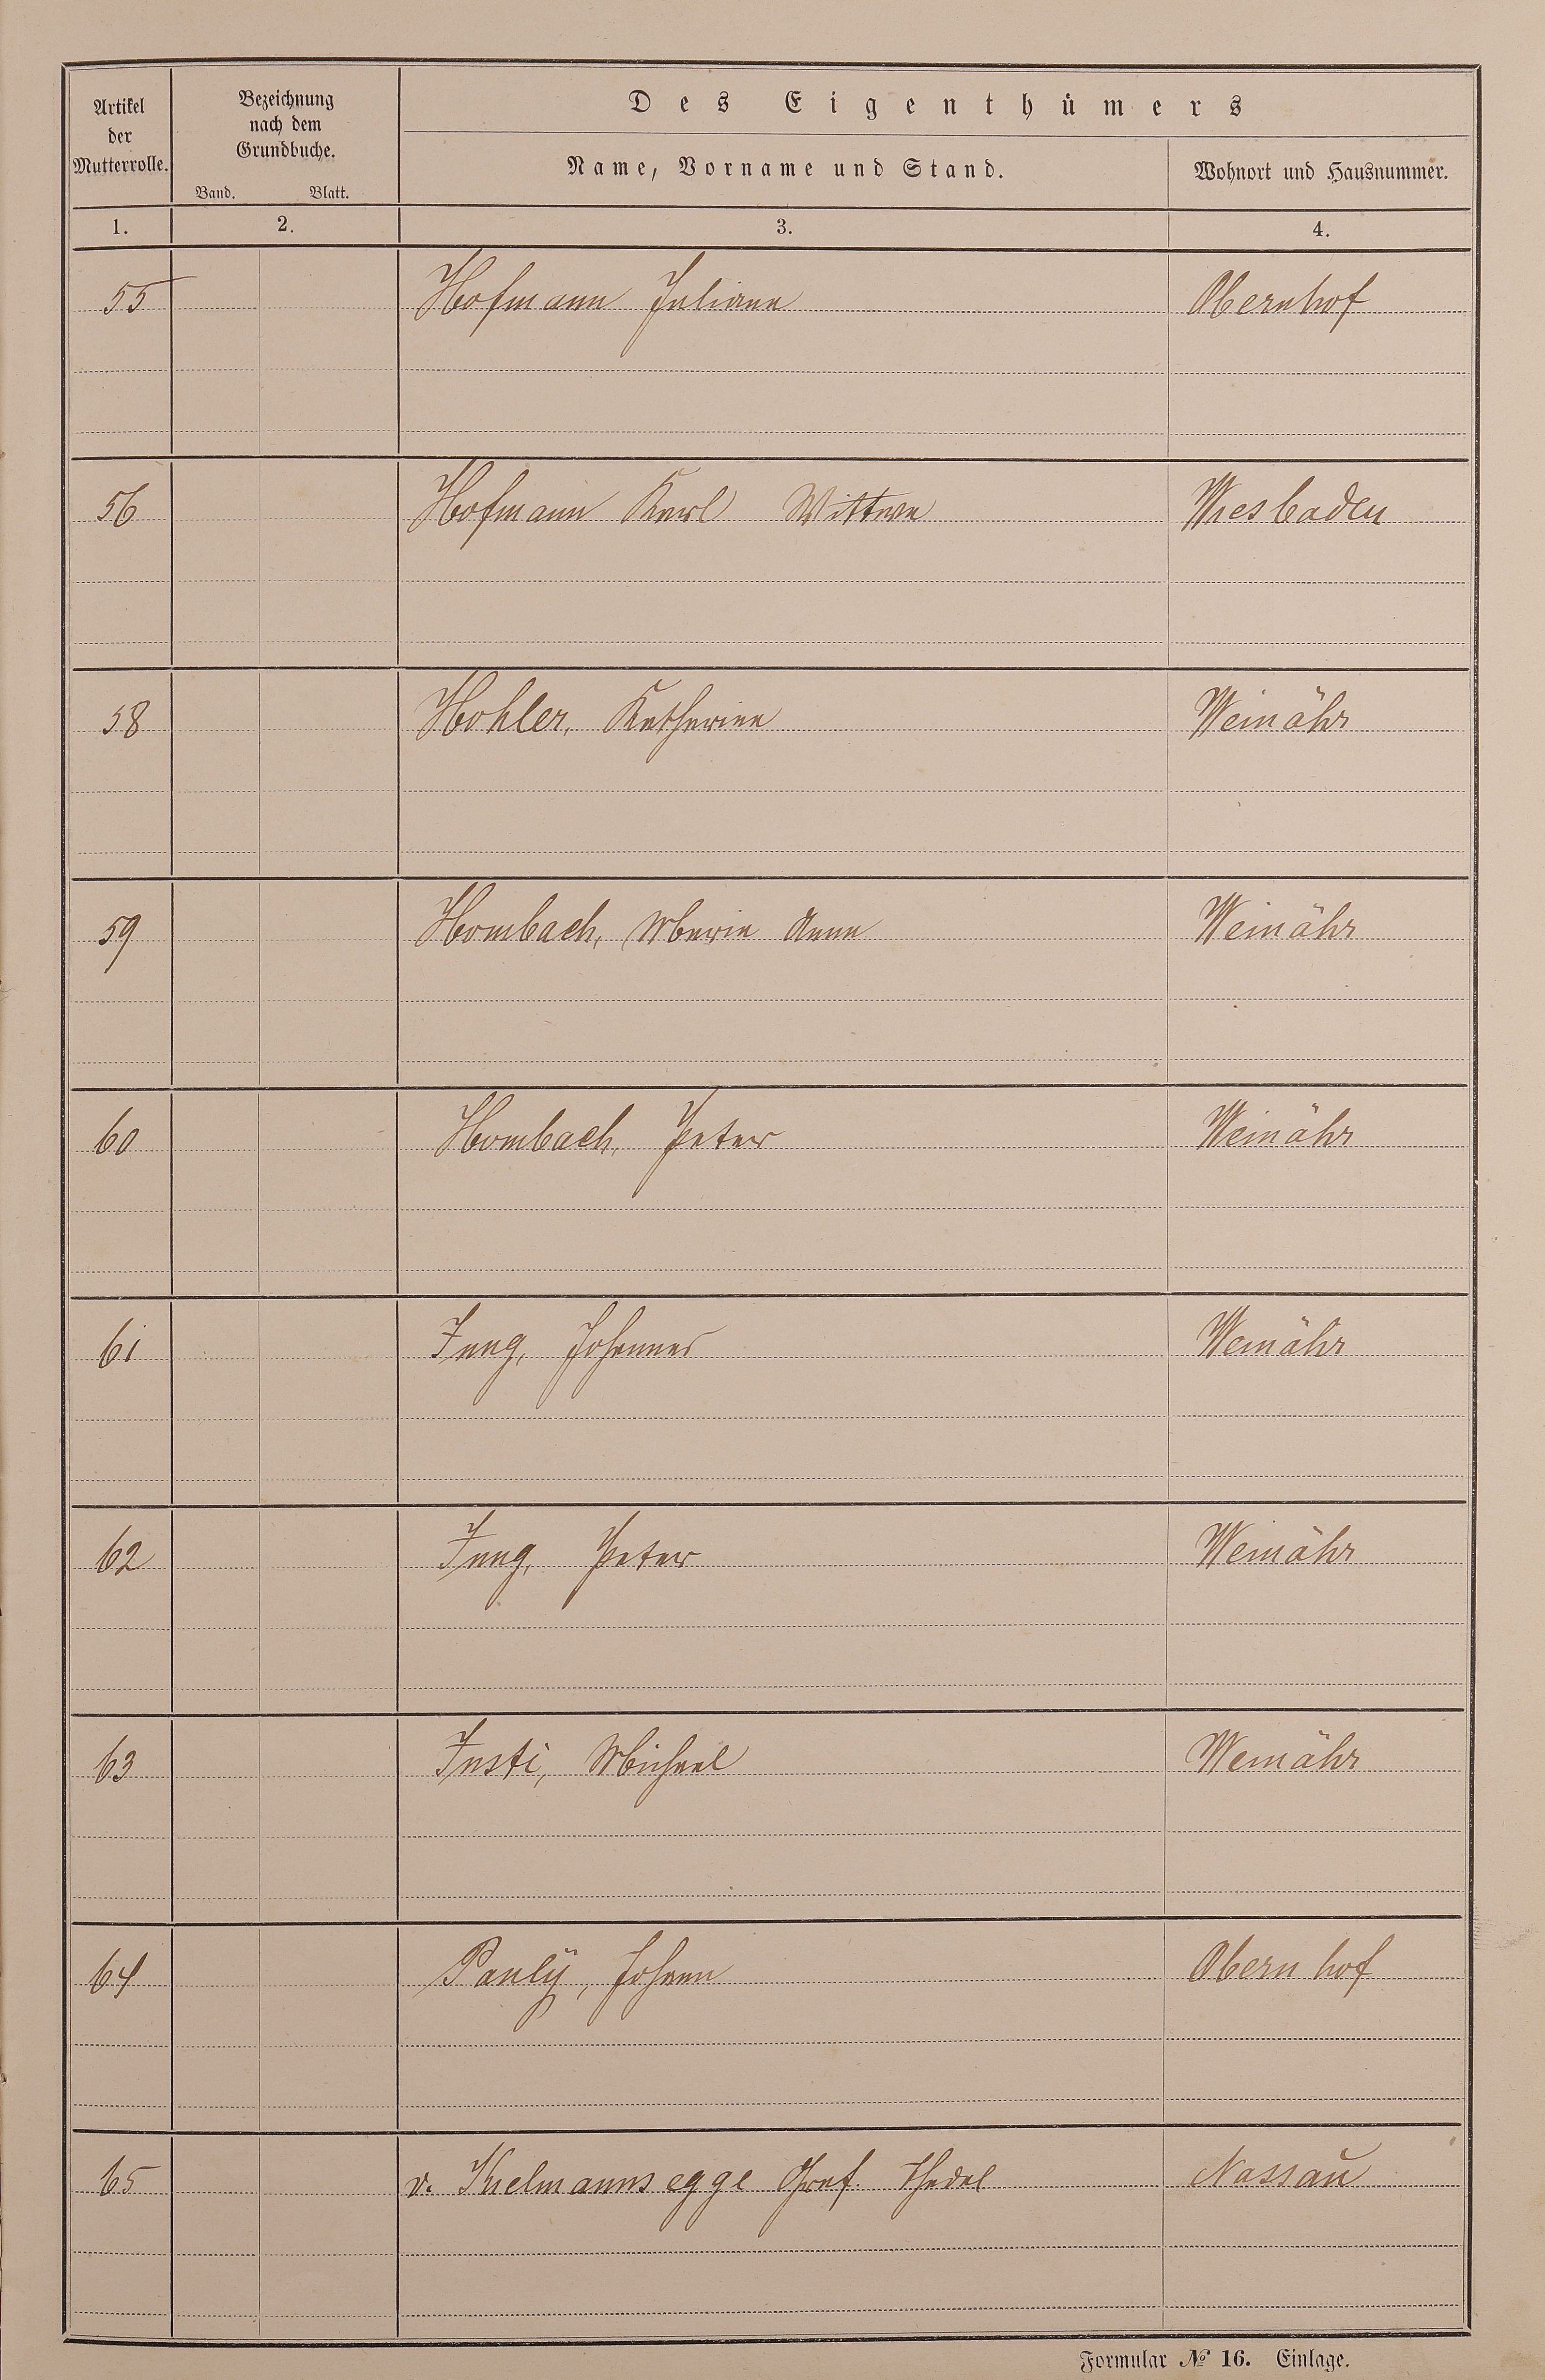 Artikel der Mutterrolle.
Bezeichnung nach dem Grundbuche.
Band. Blatt.
Des Eigenthümers
Name, Vorname und Stand.
Wohnort und Hausnummer.
1. 2. 3. 4.
55 Hofmann Juliana Obernhof
56 Hofmann Karl Wittwe Wiesbaden
58 Hohler, Katharina Weinähr
59 Hombach, Maria Anna Weinähr
60 Hombach, Peter Weinähr
61 Jung, Johannes Weinähr
62 Jung, Peter Weinähr
63 Justi, Michael Weinähr
64 Paulÿ, Johann Obernhof
65 v. Kielmannsegge Graf. Thedel Nassau
Formular № 16. Einlage.